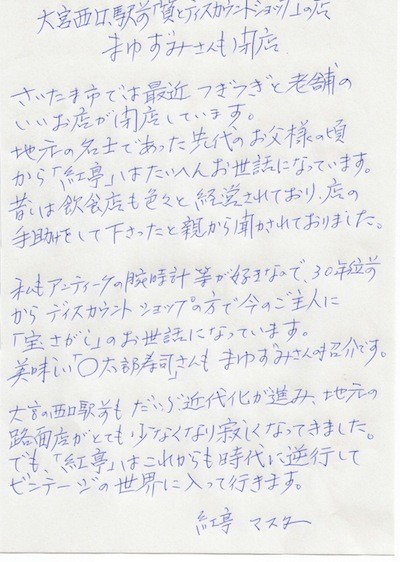 大宮西口駅前「質とディスカウントショップ」の店
まゆずみさんも閉店
さいたま市では最近つぎつぎと老舗の
いいお店が閉店しています。
地元の名士であった先代のお父様の頃
から「紅亭」はたいへんお世話になっています。
昔しは飲食店も色々と経営されており、店の
手助けをして下さったと親から聞かされておりました。
私もアンティークの腕時計等が好きなので、30年位前
からディスカウントショップの方で今のご主人に
「宝さがし」のお世話になっています。
美味しい「〇太郎寿司」さんもまゆずみさんの紹介です。
大宮の西口駅前もだいぶ近代化が進み、地元の
路面店がとても少なくなり寂しくなってきました。
でも、「紅亭」はこれからも時代に逆行して
ビンテージの世界に入って行きます。
紅亭 マスター